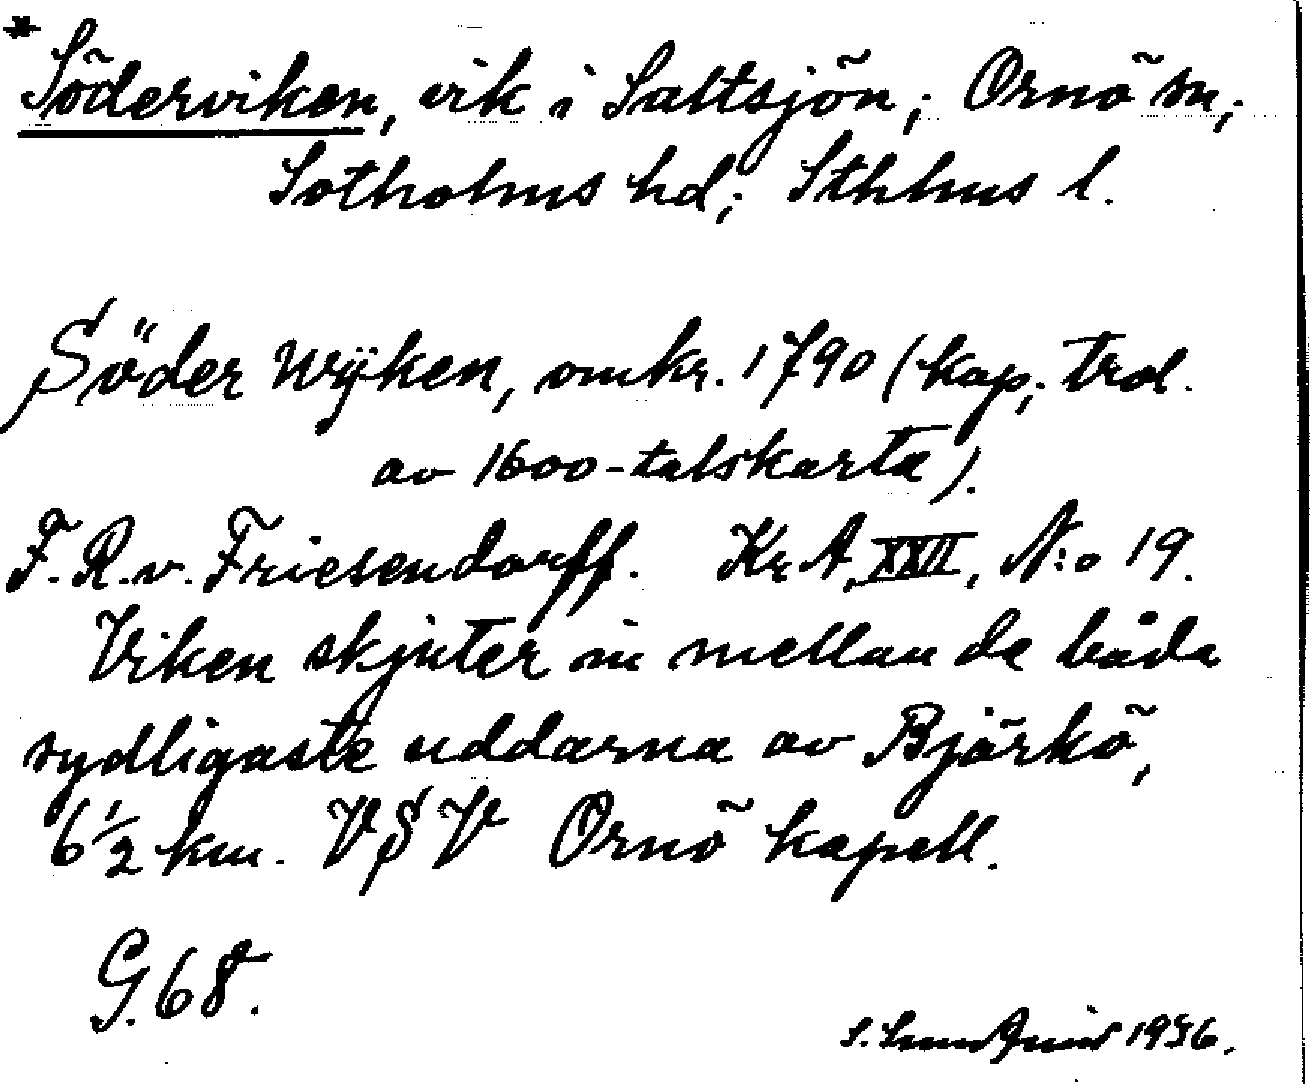 * Söderviken, vik i Saltsjön; Ornö sn;
Sotholms hd; Sthlms l.
Söder Wÿken, omkr. 1790 (kop; trol.
av 1600-talskarta).
F. R. v. Friesendorff. Kr A, XXII, N:o 19.
Viken skjuter in mellan de båda
sydligaste uddarna av Björkö,
6 1/2 km. VSV Ornö kapell.
G. 68.
S. 1936.